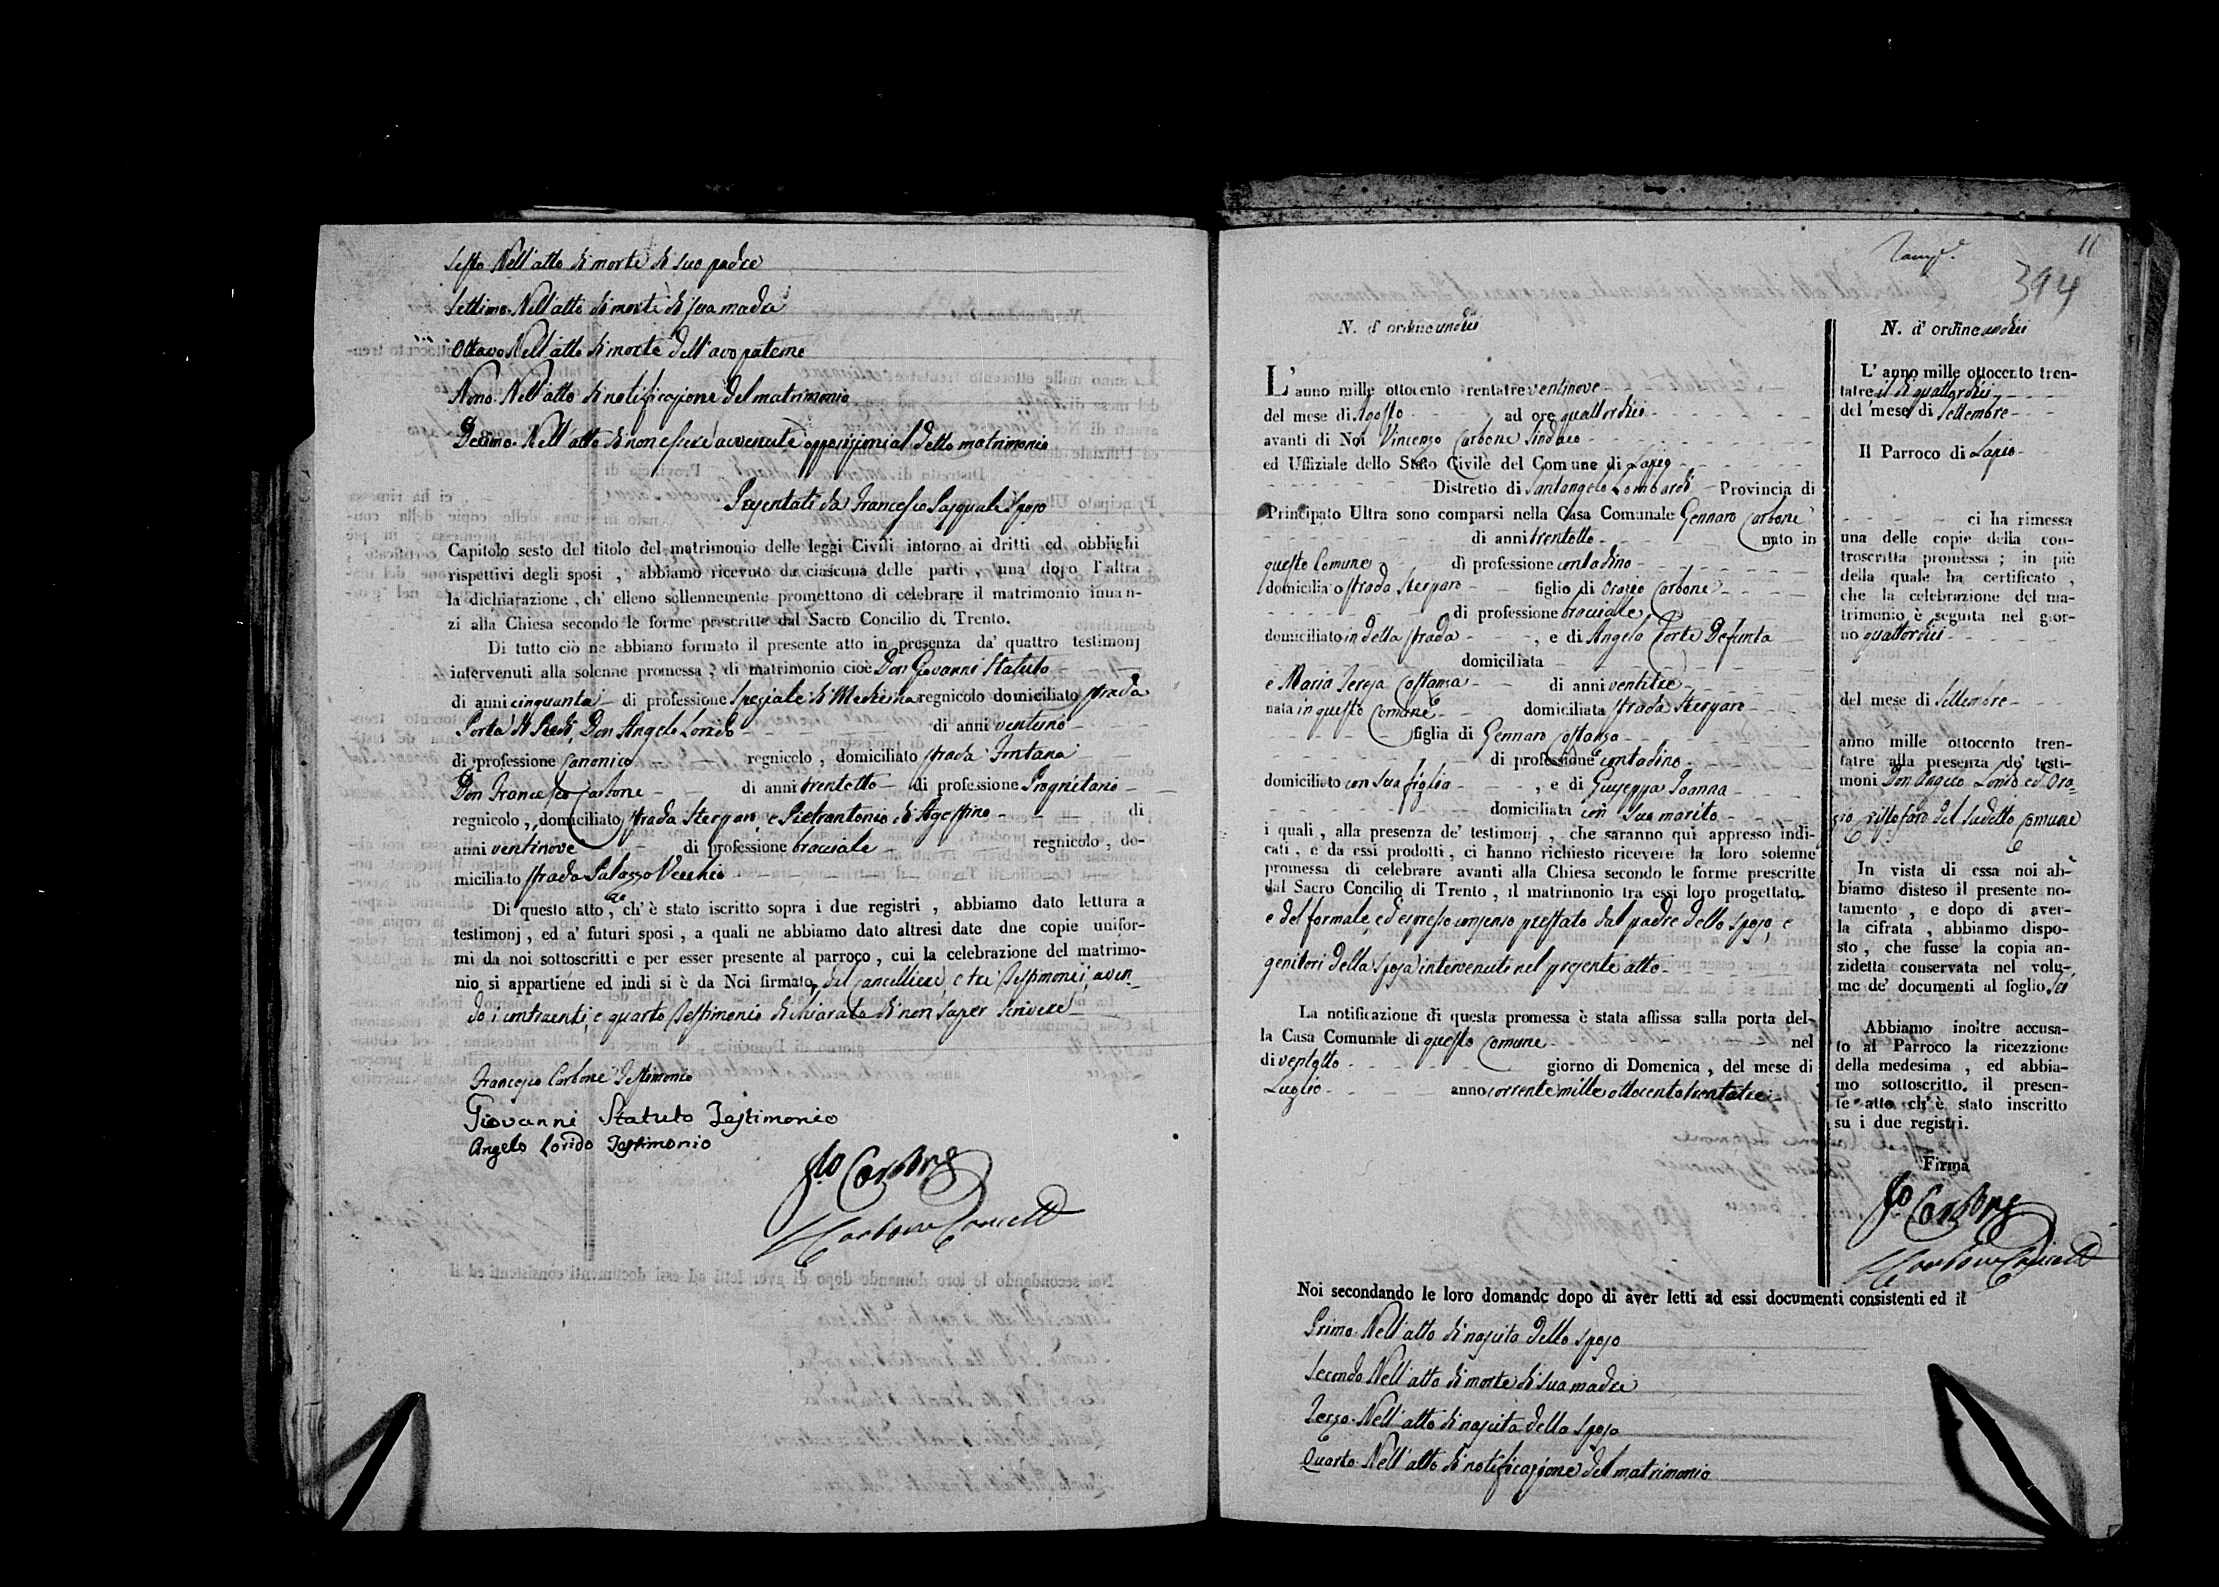 Sesto. Nell'atto di morte di suo padre
Settimo. Nell'atto di morte di sua madre
Ottavo. Nell'atto di morte dell'avo paterno
Nono. Nell'atto di notificazione del matrimonio
Decimo. Nell'atto di non essere avvenute opposizioni al detto matrimonio
Presentati da Francesco Pasquale Sposo
Capitolo sesto del titolo del matrimonio delle leggi Civili intorno ai dritti ed obblighi
rispettivi degli sposi, abbiamo ricevuto da ciascuna delle parti, una dopo l'altra
la dichiarazione, ch' elleno sollennemente promettono di celebrare il matrimonio innan-
zi alla Chiesa secondo le forme prescritte dal Sacro Concilio di Trento.
Di tutto ciò ne abbiamo formato il presente atto in presenza da' quattro testimonj
intervenuti alla solenne promessa, di matrimonio cioè Don Giovanni Statuto
di anni cinquanta di professione Speziale di Medicina regnicolo domiciliato strada
Porta Don Angelo Lorido di anni ventuno
di professione Canonico regnicolo, domiciliato strada Fontana
Don Francesco Carbone di anni trentotto di professione Proprietario
regnicolo, domiciliato strada Stergaro, e Pietrantonio di Agostino di
anni ventinove di professione bracciale regnicolo, do-
miciliato strada Palazzo Vecchio
Di questo atto, ch'è stato iscritto sopra i due registri, abbiamo dato lettura a
testimonj, ed a' futuri sposi, a quali ne abbiamo dato altresi date due copie unifor-
mi da noi sottoscritti e per esser presente al parroco, cui la celebrazione del matrimo-
nio si appartiene ed indi si è da Noi firmato, del Cancelliere, e tre Testimonii, aven-
do i contraenti, e quarto Testimonio dichiarato di non saper scrivere
Francesco Carbone Testimonio
Giovanni Statuto Testimonio
Angelo Lorido Testimonio
Carbone
Carbone
11
394
N. d' ordine undici
L'anno mille ottocento trentatre ventinove
del mese di Agosto ad ore quattordici
avanti di Noi Vincenzo Carbone Sindaco
ed Uffiziale dello Stato Civile del Comune di Lapio
Distretto di Santangelo Lombardi Provincia di
Principato Ultra sono comparsi nella Casa Comunale Gennaro Carbone
di anni trentotto nato in
questo Comune di professione contadino
domiciliato strada Stergaro figlio di Orazio Carbone
di professione bracciale
domiciliato in detta strada, e di Angela Forte Defunta
domiciliata
e Maria Teresa Costanza di anni ventitre
nata in questo Comune domiciliata strada Stergaro
figlia di Gennaro Costanza
di professione contadino
domiciliato con sua figlia, e di Giuseppa Joanna
domiciliata con suo marito
i quali, alla presenza de' testimonj, che saranno qui appresso indi-
cati, e da essi prodotti, ci hanno richiesto ricevere la loro solenne
promessa di celebrare avanti alla Chiesa secondo le forme prescritte
dal Sacro Concilio di Trento, il matrimonio tra essi loro progettato,
e del formale, ed espresso consenso prestato dal padre dello sposo, e
genitori della sposa intervenuto nel presente atto
La notificazione di questa promessa è stata affissa sulla porta del-
la Casa Comunale di questo Comune nel
di ventotto giorno di Domenica, del mese di
Luglio anno corrente mille ottocento trentatre
N. d' ordine undici
L' anno mille ottocento tren-
tatre il di quattordici
del mese di Settembre
Il Parroco di Lapio
ci ha rimessa
una delle copie della con-
troscritta promessa; in piè
della quale ha certificato,
che la celebrazione del ma-
trimonio è seguita nel gior-
no quattordici
del mese di Settembre
anno mille ottocento tren-
tatre alla presenza de' testi-
moni Don Angelo Lorido ed Ora-
zio Cristofaro del sudetto Comune
In vista di essa noi ab-
biamo disteso il presente no-
tamento, e dopo di aver-
la cifrata, abbiamo dispo-
sto, che fusse la copia an-
zidetta conservata nel volu-
me de' documenti al foglio sei
Abbiamo inoltre accusa-
to al Parroco la ricezzione
della medesima, ed abbia-
mo sottoscritto. il presen-
te atto ch'è stato inscritto
su i due registri.
Firma
Carbone
Carbone
Noi secondando le loro domande dopo di aver letti ad essi documenti consistenti ed il
Primo. Nell'atto di nascita dello sposo
Secondo. Nell'atto di morte di sua madre
Terzo. Nell'atto di nascita della sposa
Quarto. Nell'atto di notificazione del matrimonio